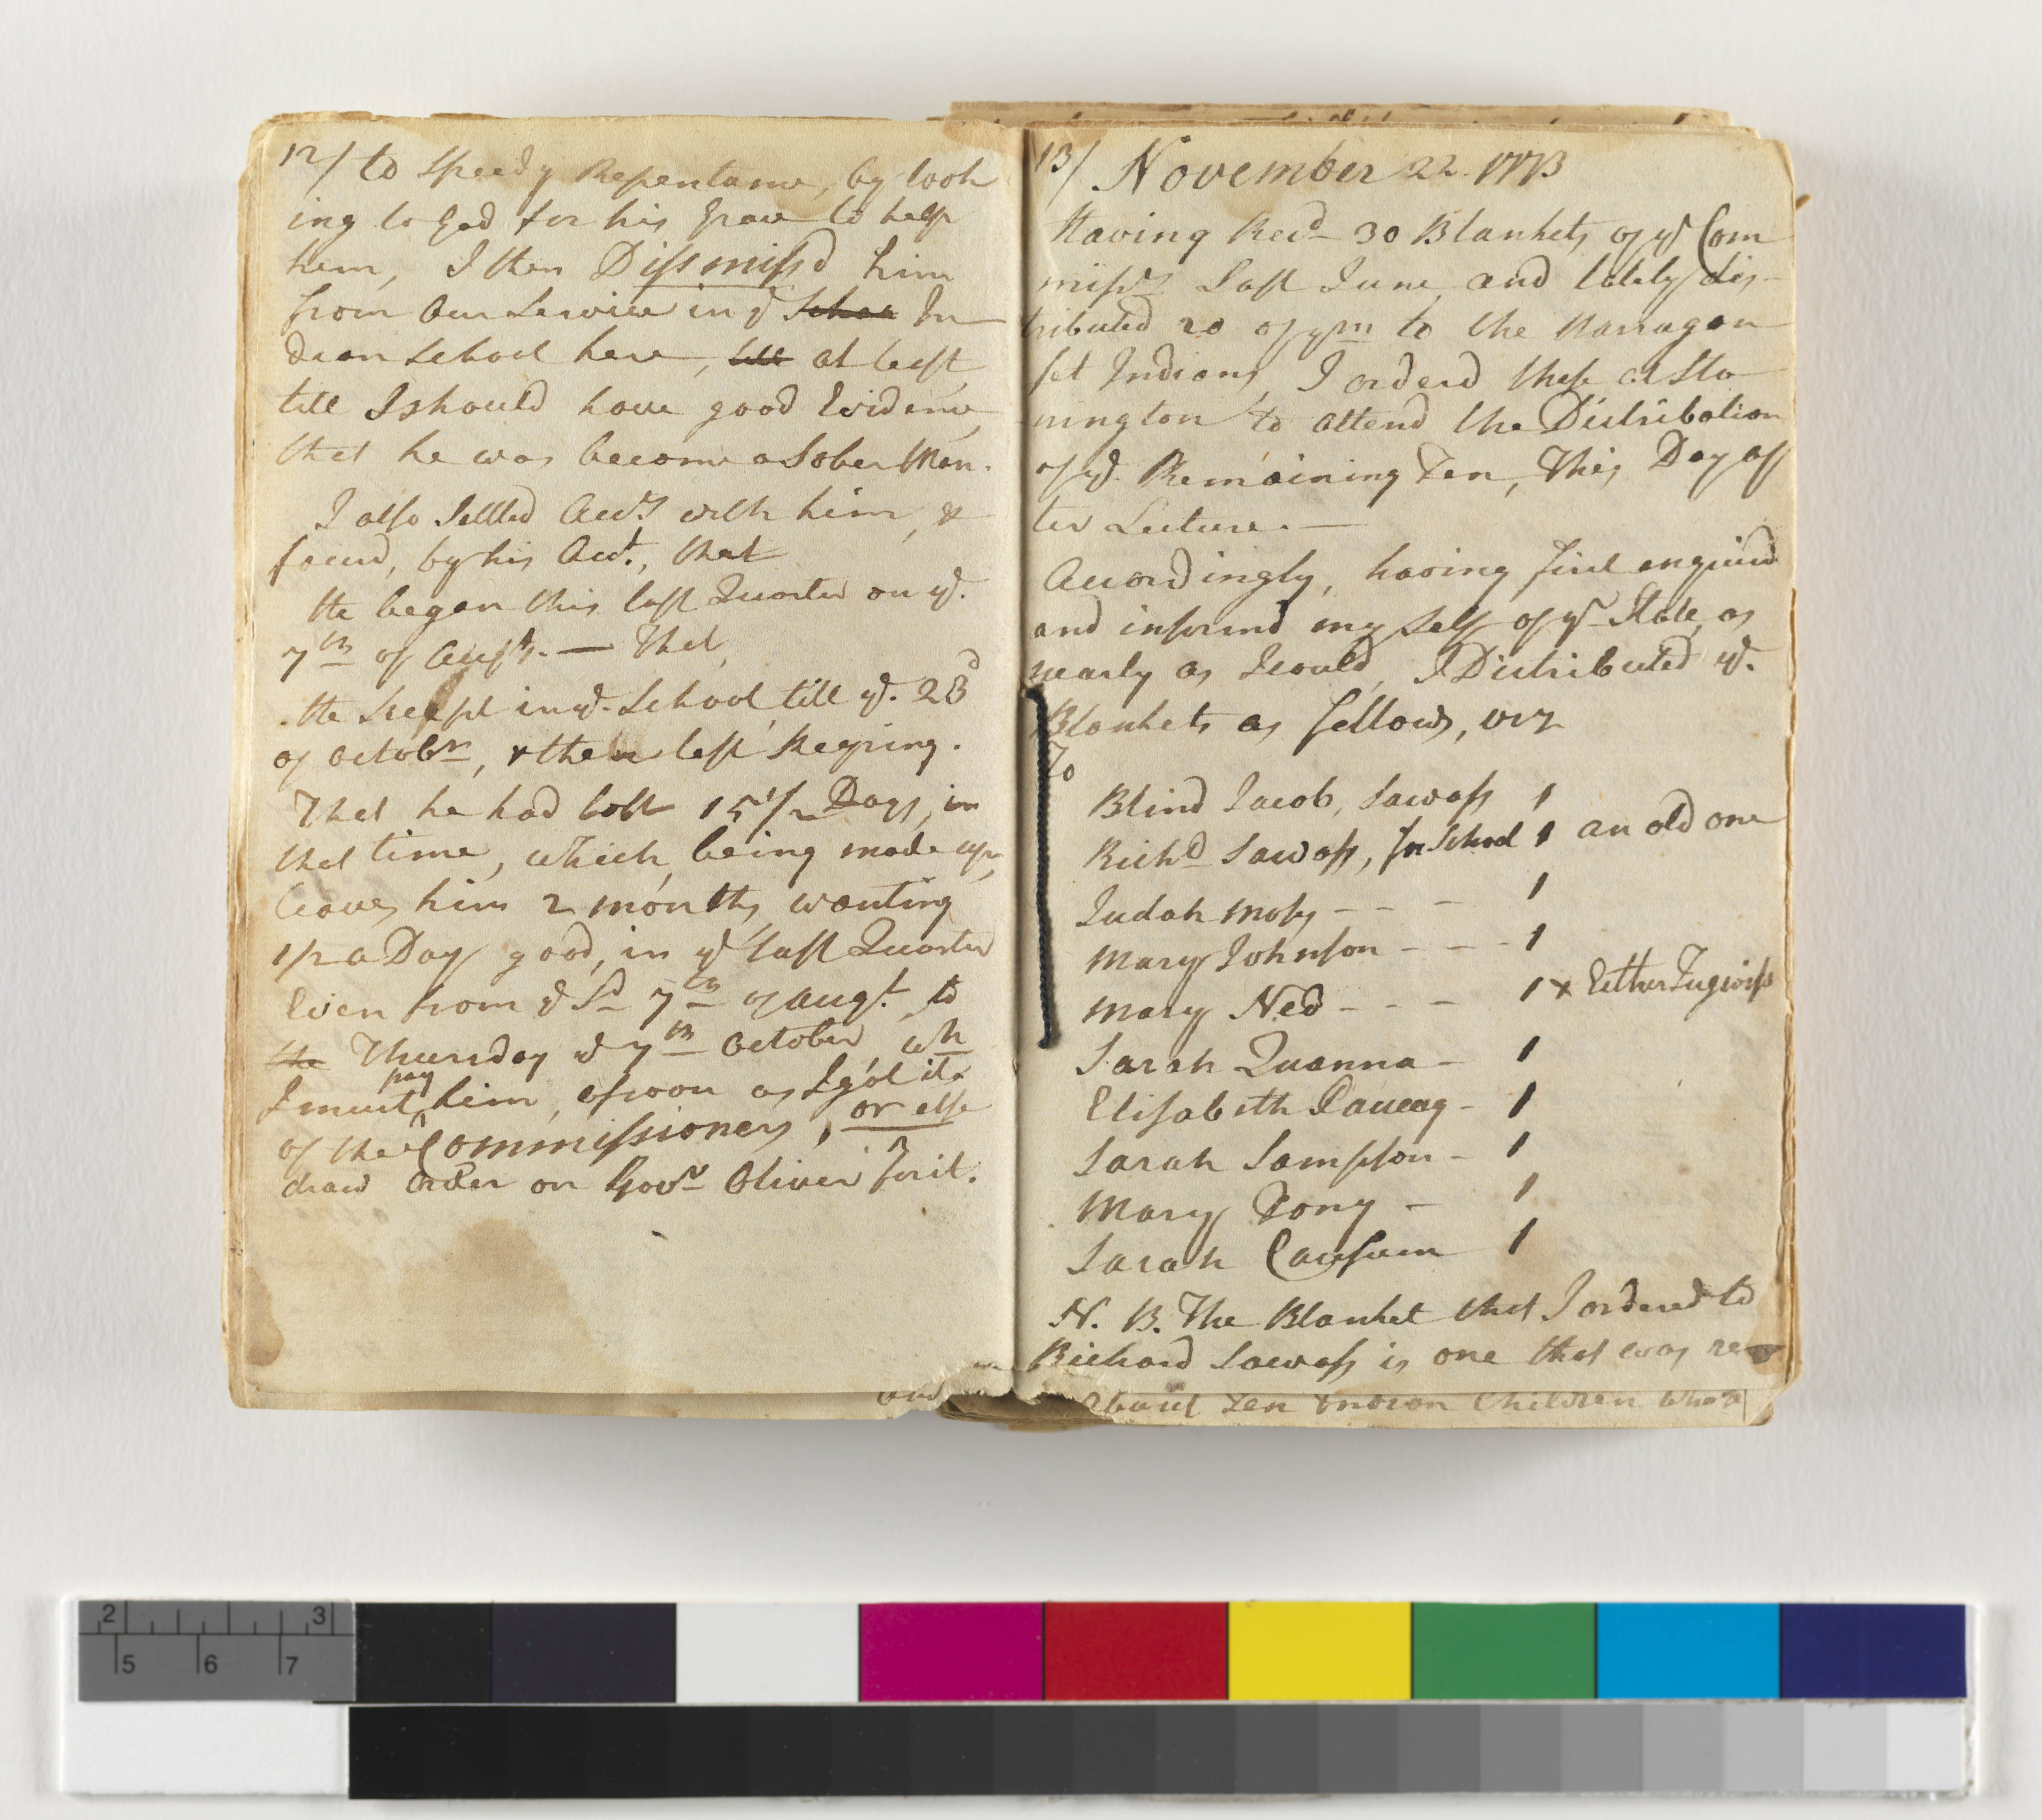 12/ to Speedy Repentance, by look
ing to God for his Grace to help
him, I then Dissmiss'd him
from our Service in ye Schoo In
dian School here, till at least
till I should have good Evidence
that he was become a Sober Man.
I also Settled Accts with him, &
found, by his Acct., that
He began this last Quarter on ye.
7th of Augst. — That
He Kept in ye. School till ye. 23d
of Octobr, & then left Keeping.
That he had lost 15 1/2 Days, in
that time, which being made up,
leaves him 2 months, wanting
1/2 a Day good, in ye last Quarter
Even from ye Sd 7th of Augt. to
the Thursday ye 7th October wh
I must pay him, as soon as I get it
of the Commissioners, or else
draw order on Govr Oliver for it.
13/ November 22. 1773
Having Recd 30 Blankets of ye Com
missrs Last June, and lately dis-
tributed 20 of ym to the Narragan
set Indians, I orderd these at Sto
nington to attend the Distribution
of ye. Remaining Ten, this Day af
ter Lecture. —
Accordingly, having first enquired
and informd my Self of yr State, as
nearly as I could, I Distributed ye.
Blankets as follows, viz
To
Blind Jacob, Sawass 1
Richd Sawass, for School 1 an old one
Judah Moses - - - 1
Mary Johnson - - - 1
Mary Ned - - - 1 x Esther Tugwiss
Sarah Quanna - 1
Elisabeth Paucag - 1
Sarah Sampson - 1
Mary Tony - 1
Sarah Causum 1
N. B. The Blanket that I ordered to
Richard Sawass is one that was re
and
about Ten Indian Children who